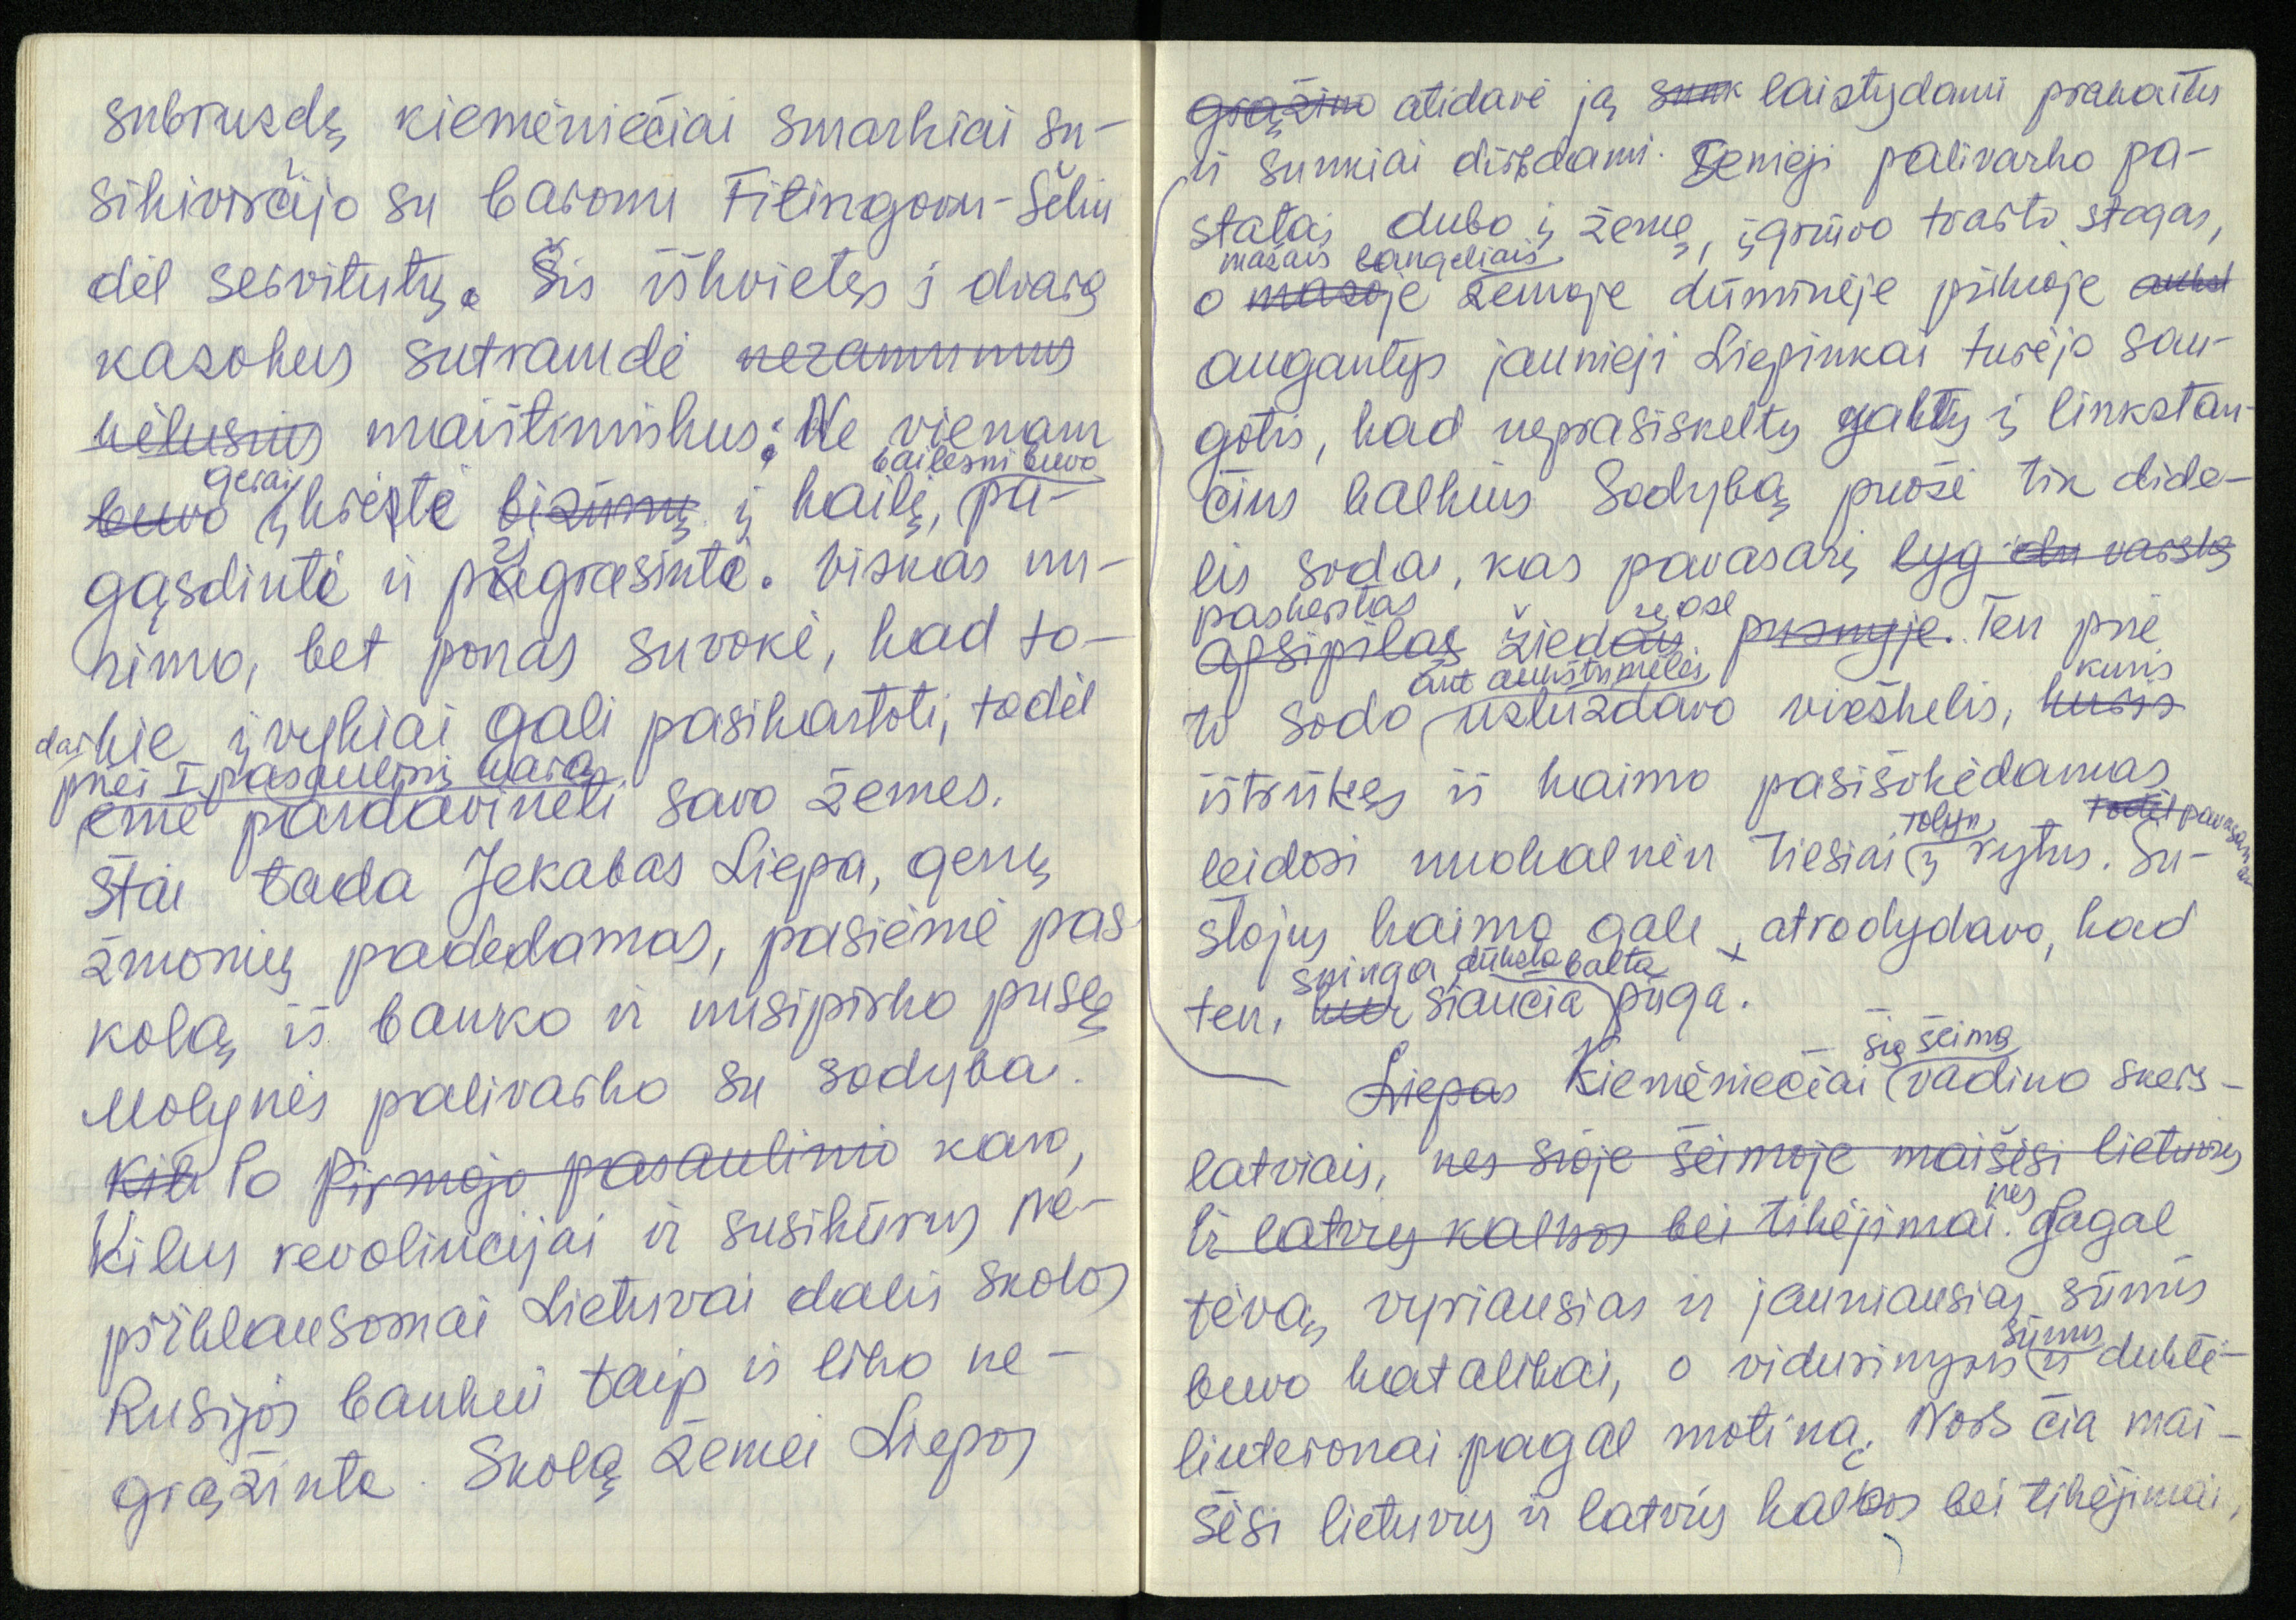 subruzdę kiemėniečiai smarkiai su-
sikivirčijo su baronu Fitingovu-Šėliu
dėl servitutų. Šis iškvietęs į dvarą
kazokus sutramdė neramumus
kėlusius maištininkus: Ne vienam
bailesni buvo
gerai
buvo įkrėstė bizūnų į kailį, pa-
gąsdintė ir pagrasintė. Viskas nu-
rimo, bet ponas suvokė, kad to-
darkie įvykiai gali pasikartoti, todėl
prieš I pasaulinį karą
ėmė pardavinėti savo žemes.
Štai tada Jekabas Liepa, gerų
žmonių padedamas, pasiėmė pas-
kolą iš banko ir nusipirko pusę
Molynės palivarko su sodyba.
Kil Po Pirmojo pasaulinio karo,
Kilus revoliucijai ir susikūrus ne-
priklausomai Lietuvai dalis skolos
Rusijos bankui taip ir liko ne-
grąžinta. Skolą žemei Liepos
grąžino atidavė ją sunk laistydami prakaitu
ir sunkiai dirbdami. Senieji palivarko pa-
statai dubo į žemę, įgriuvo tvarto stogas,
mažais langeliais
o mažoje žemoje dūminėje pirkioje aukšt
augantys jaunieji Liepinkai turėjo sau-
gotis, kad neprasiskeltų galvų į linkstan-
čius balkius Sodybą puošė tik dide-
lis sodas, kas pavasarį lyg du varsky
paskendęs žieduose
apsipilas žiedais pusnyje. Ten prie
ant aukštumėlės kuris
to sodo užlūždavo vieškelis, kuris
ištrūkęs iš kaimo pasišokėdamas
tolyn todėl pavasarį
leidosi nuokalnėn tiesiai į rytus. Su-
stojus kaimo gale, atrodydavo, kad
sninga, dūksta balta
ten, kur siaučia pūga.
šią šeimą
Liepas Kiemėniečiai vadino skers-
latviais, nes šioje šeimoje maišėsi lietuvių
ir latvių kalbos bei tikėjimai. nes Pagal
tėvą vyriausias ir jauniausias sūnūs
sūnus
buvo katalikai, o vidurinysis ir duktė-
liuteronai pagal motiną. Nors čia mai-
šėsi lietuvių ir latvių kalbos bei tikėjimai,